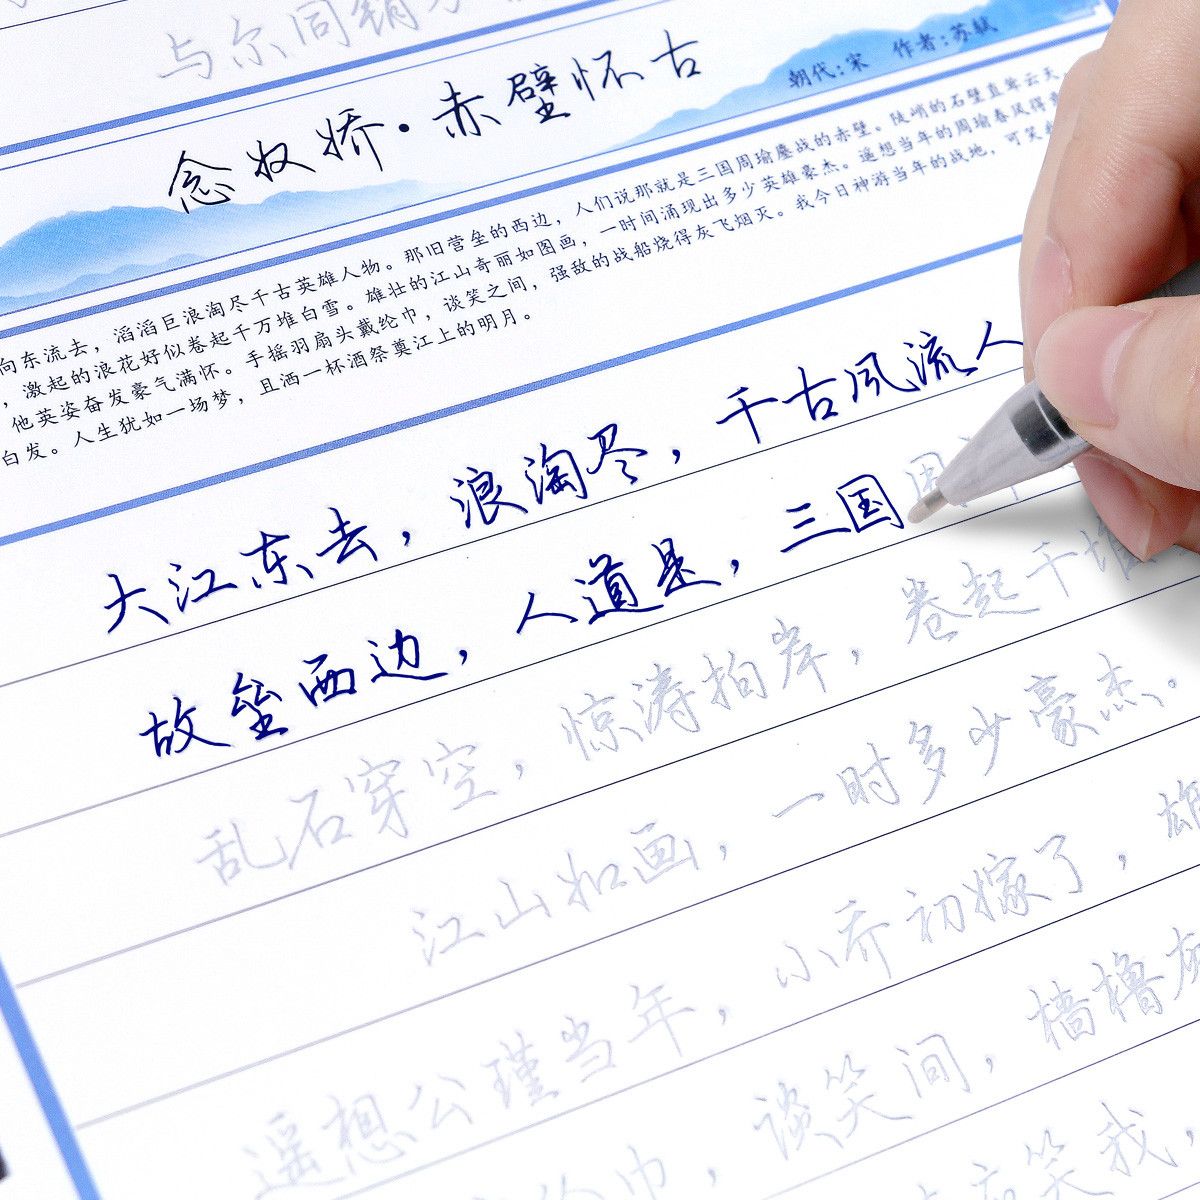 与尔同销
念奴娇·赤壁怀古
朝代:宋 作者:苏轼
向东流去，滔滔巨浪淘尽千古英雄人物。那旧营垒的西边，人们说那就是三国周瑜鏖战的赤壁。陡峭的石壁直耸云天，
，激起的浪花好似卷起千万堆白雪。雄壮的江山奇丽如图画，一时间涌现出多少英雄豪杰。遥想当年的周瑜春风得
他英姿奋发豪气满怀。手摇羽扇头戴纶巾，谈笑之间，强敌的战船烧得灰飞烟灭。我今日神游当年的战地，可笑
白发。人生犹如一场梦，且洒一杯酒祭奠江上的明月。
大江东去，浪淘尽，千古风流人
故垒西边，人道是，三国周
乱石穿空，惊涛拍岸，卷起千堆
江山如画，一时多少豪杰。
遥想公瑾当年，小乔初嫁了，雄
巾，谈笑间，樯橹灰
笑我，